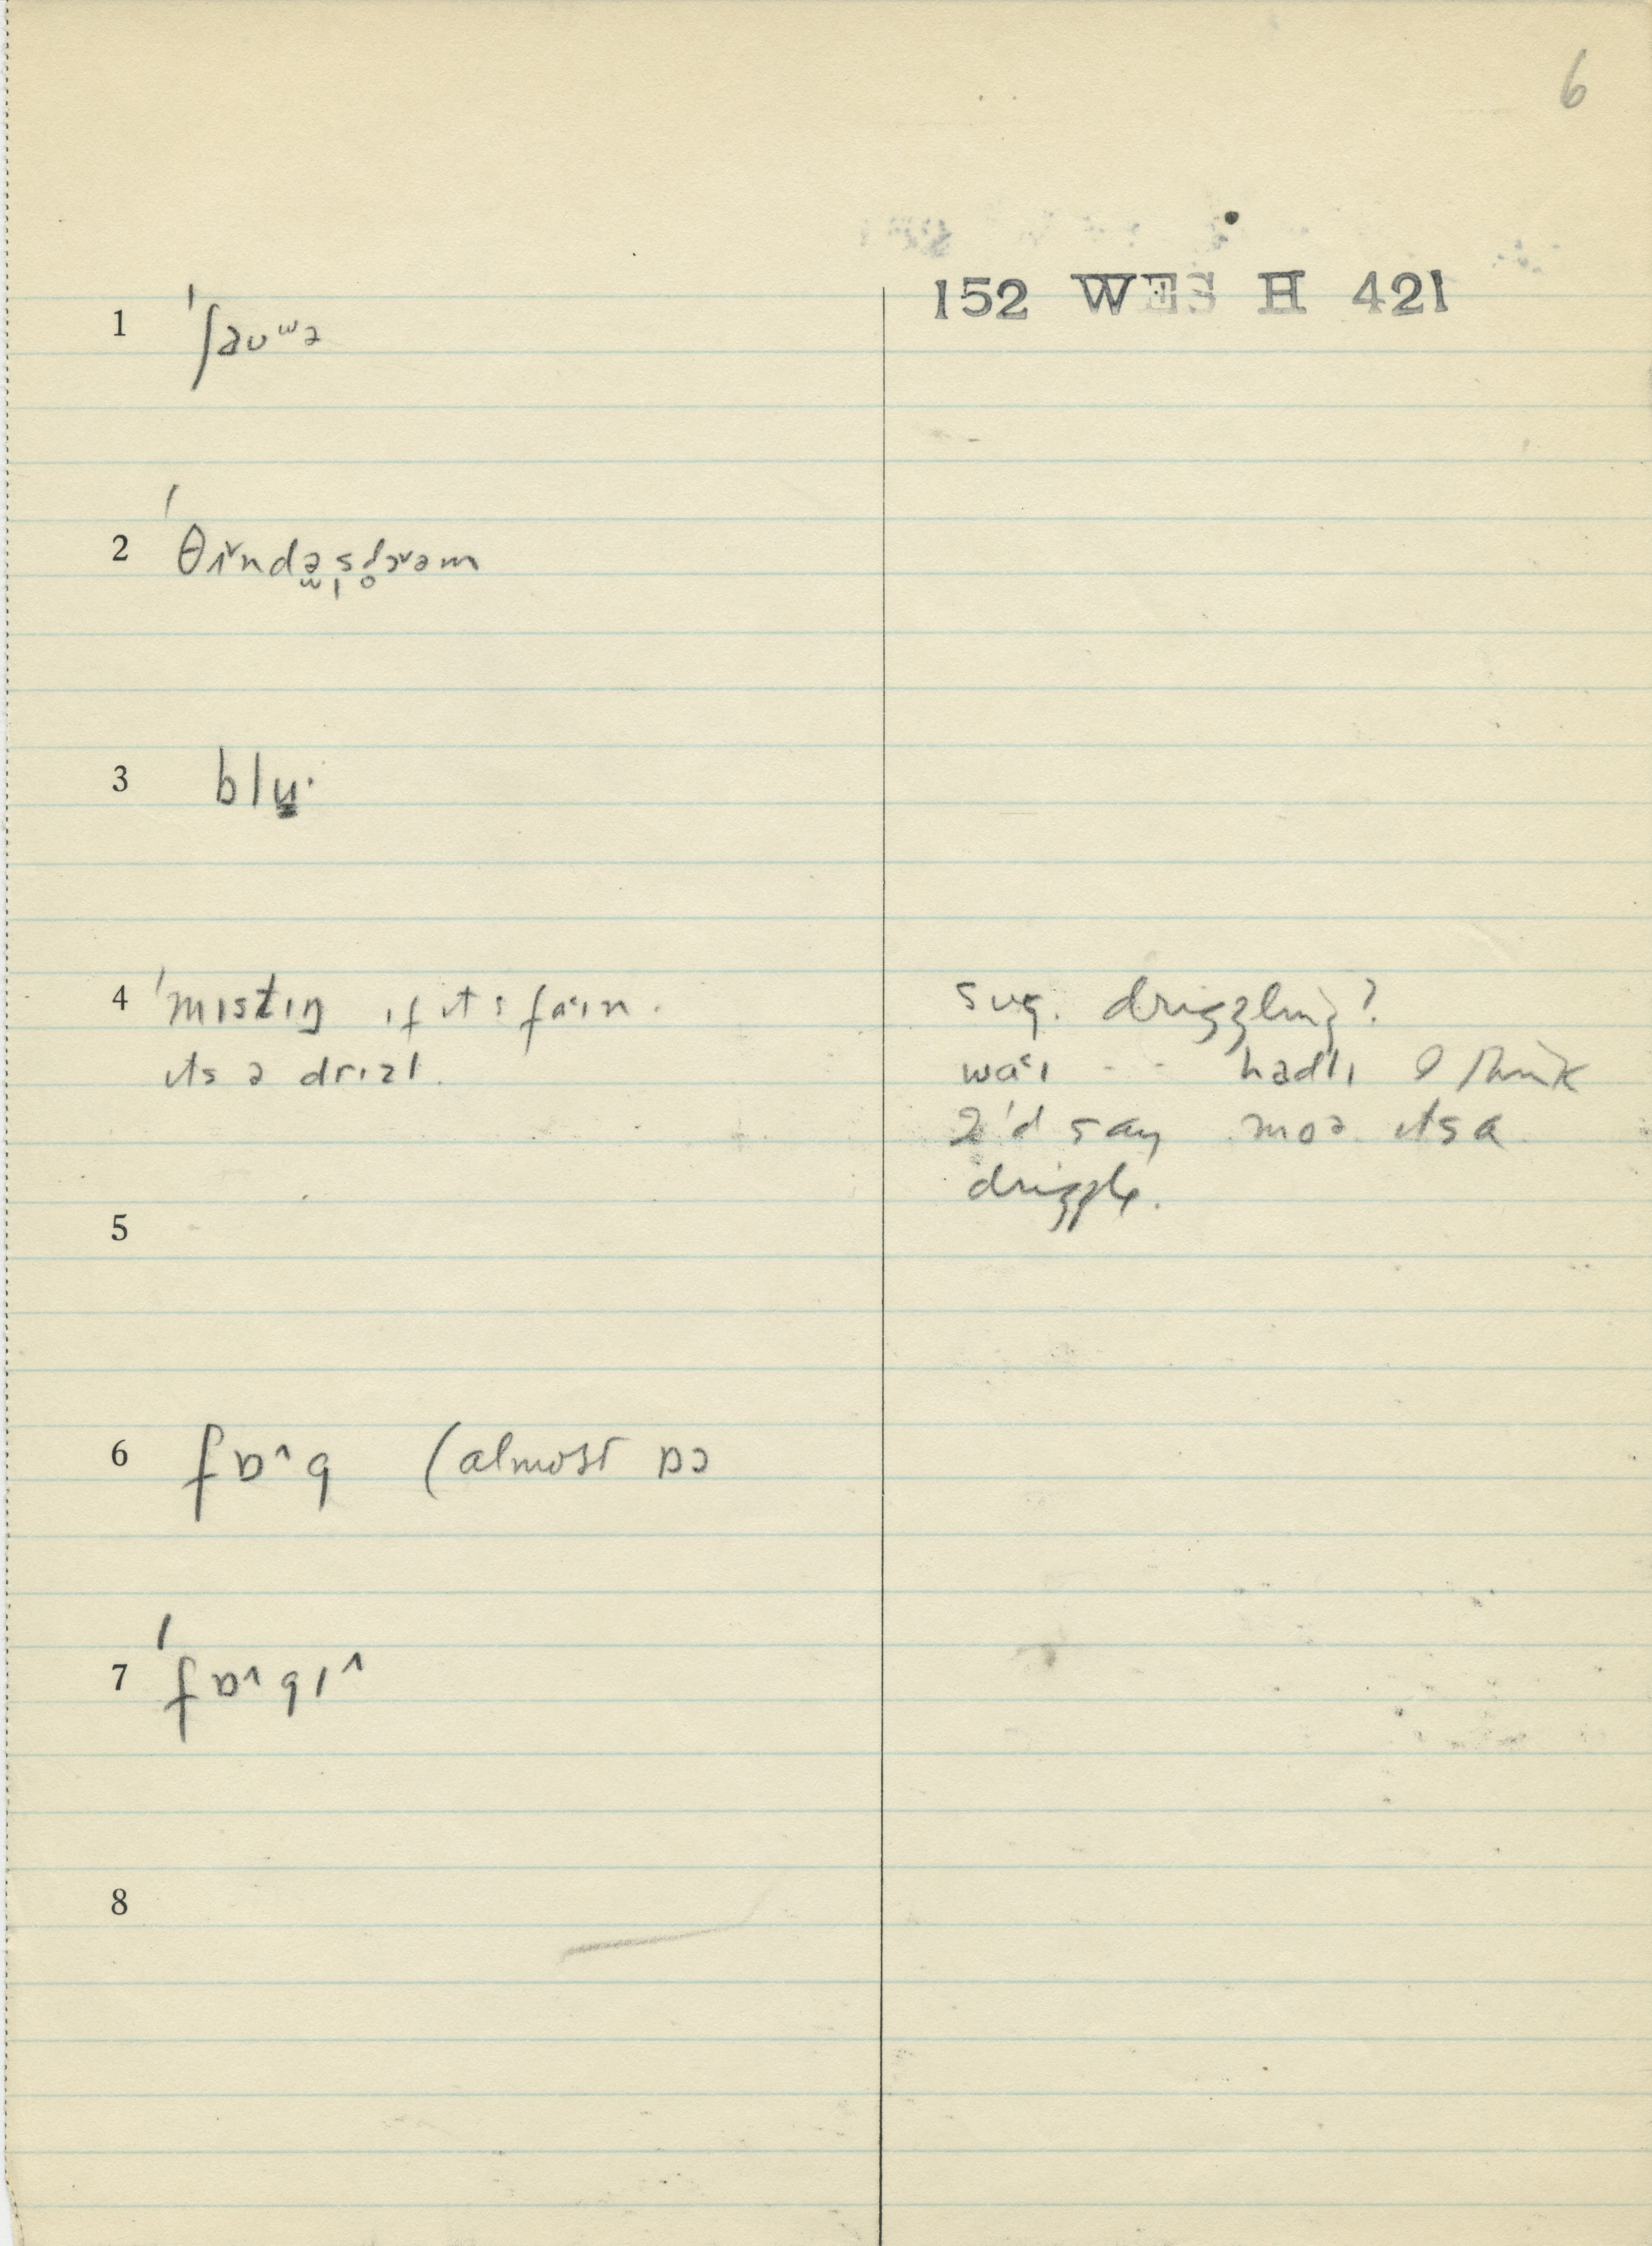 6
152 WES H 421
1 ˈʃaʊʷə
2
3 blʉ·
4 ˈmɪstɪŋ ɪf ɪts faˑɪn.
ɪts ə drɪzl.
sug. drizzling?
waˑɪ - - hadlɪ I think
I'd say moə ɪts a
drizzle.
5
6 fɒ^g (almost ɒɔ
7 ˈfɒ^gɪ^
8